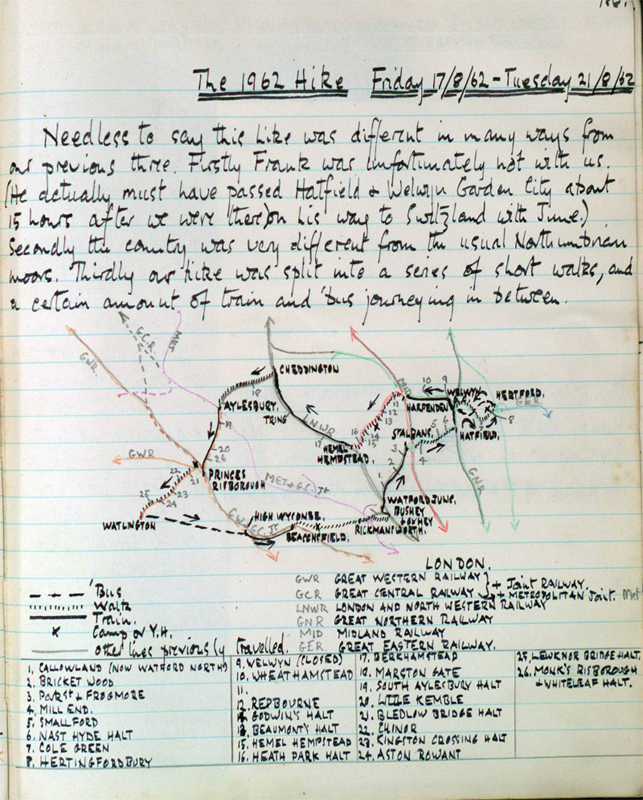 The 1962 Hike Friday 17/8/62 - Tuesday 21/8/62
Needless to say this hike was different in many ways from
our previous three. Firstly Frank was unfortunately not with us.
(He actually must have passed Hatfield & Welwyn Garden City about
15 hours after we were there) on his way to Switzland with June.)
Secondly the country was very different from the usual Northumbrian
moors. Thirdly our hike was split into a series of short walks, and
a certain amount of train and 'bus journeying in between.
GWR
GCR
MET
CHEDDINGTON
18
AYLESBURY
TRING
LNWR
17
19
20
26
GWR
22
21
PRINCES
RISBOROUGH
25
23
24
WATLINGTON
MET & G.C. Jt
GW & GC Jt
HIGH WYCOMBE
BEACONSFIELD
RICKMANSWORTH
HEMEL
HEMPSTEAD
16
15
14
13
12
11
MID
10
9
WELWYN
HARPENDEN
HERTFORD
GER
8
7
HATFIELD
St ALBANS
6
5
4
3
2
1
GNR
WATFORD JUNC.
BUSHEY
& OXHEY
LONDON.
'Bus
Walk
Train.
Camp or Y.H.
other lines previously travelled.
GWR GREAT WESTERN RAILWAY
GCR GREAT CENTRAL RAILWAY
+ Joint RAILWAY.
+ METROPOLITAN Joint. Met
LNWR LONDON AND NORTH WESTERN RAILWAY
GNR GREAT NORTHERN RAILWAY
MID MIDLAND RAILWAY
GER GREAT EASTERN RAILWAY.
1. CALLOWLAND (NOW WATFORD NORTH)
2. BRICKET WOOD
3. PARK ST & FROGMORE
4. MILL END.
5. SMALLFORD
6. NAST HYDE HALT
7. COLE GREEN
8. HERTINGFORDBURY
9. WELWYN (CLOSED)
10. WHEATHAMSTEAD
11.
12. REDBOURNE
14. GODWIN'S HALT
13. BEAUMONT'S HALT
15. HEMEL HEMPSTEAD
16. HEATH PARK HALT
17. BERKHAMSTEAD
18. MARSTON GATE
19. SOUTH AYLESBURY HALT
20. LITTLE KEMBLE
21. BLEDLOW BRIDGE HALT
22. CHINOR
23. KINGSTON CROSSING HALT
24. ASTON ROWANT
25. LEWKNOR BRIDGE HALT.
26. MONK'S RISBOROUGH
& WHITELEAF HALT.